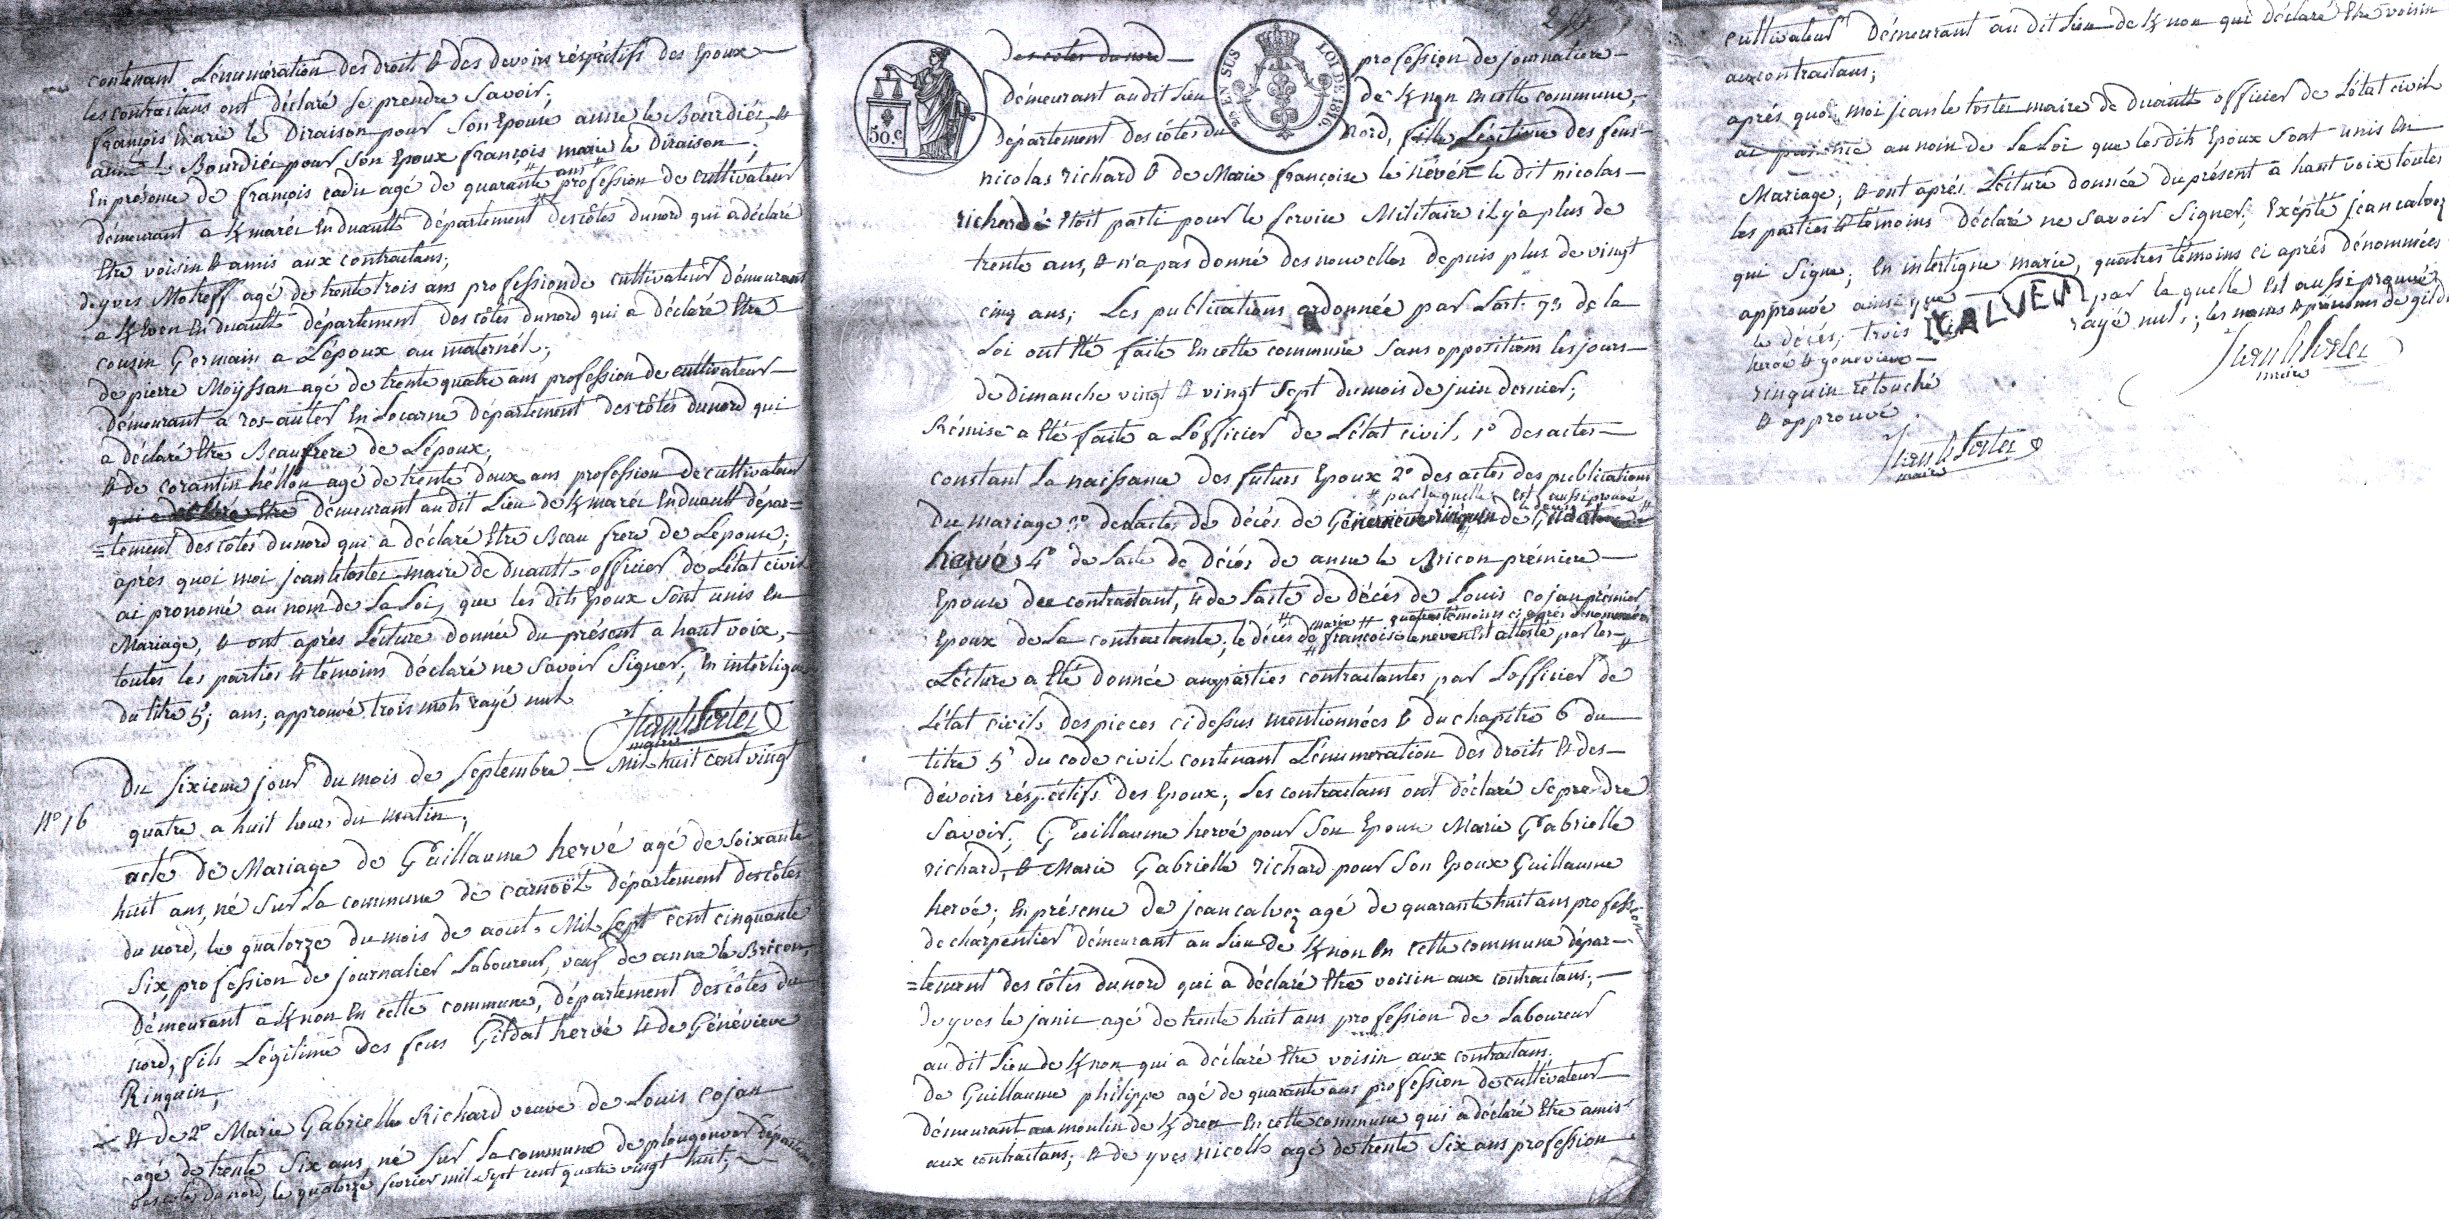 contenant L'énumération des droits & des devoirs réspéctifs des Epoux
les contractans ont déclaré se prendre savoir;
françois marie le Diraison pour son Epouse anne le Bourdiéc, &
anne le Bourdiéc pour son Epoux françois marie le Diraison;
En présence de françois cadic agé de quarante ans profession de cultivateur
démeurant a K/maréc En duault département des côtes du nord qui a déclaré
Etre voisin & amis aux contractans;
de yves Motreff agé de trente trois ans profession de cultivateur démeurant
a K/ En duault département des côtes du nord qui a déclaré Etre
cousin Germain a L'époux au maternel;
de pierre Moÿssan agé de trente quatre ans profession de cultivateur
démeurant a ros-auter En Locarne département des côtes du nord qui
a déclaré Etre Beaufrere de L'époux;
& de corantin héllou agé de trente deux ans profession de cultivateur
qui a déclaré Etre démeurant au dit Lieu de K/maréc En duault dépar=
=tement des côtes du nord qui a déclaré Etre Beau frere de L'épouse;
après quoi moi jean le foster maire de duault officier de L'état civil
ai prononcé au nom de La Loi, que les dits Epoux sont unis En
Mariage, & ont après Lécture donnée du présent a haut voix,
toutes les parties & témoins déclaré ne savoir signer; En interligne
du titre 5; ans; approuvé trois mots rayé nul
jean le foster
maire
N° 16
Du sixieme jour du mois de septembre Mil huit cent vingt
quatre a huit heurs du matin,
acte de Mariage de Guillaume hervé agé de soixante
huit ans, né sur La commune de carnoët département des côtes
du nord, le quatorze du mois de aout Mil sept cent cinquante
six, profession de journalier Laboureur, veuf de anne le Bricon,
démeurant a K/non En cette commune, département des côtes du
nord, fils Légitime des feus Gildat hervé & de Généviéve
Rinquin,
& de 2° Marie Gabrielle Richard veuve de Louis cojan
agé de trente six ans, né sur La commune de plougonver département
des côtes du nord, le quatorze fevrier mil sept cent quatre vingt huit,
des côtes du nord profession de journaliere
démeurant au dit Lieu de K/non En cette commune,
département des côtes du Nord, fille Légitime des feus
50.c
EN SUS
LOI DE 1816
nicolas richard & de Marie françoise le névén le dit nicolas
richard étoit parti pour le service Militaire il y'a plus de
trente ans, & n'a pas donné des nouvelles depuis plus de vingt
cinq ans; Les publications ordonnée par L'art. 73 de la
Loi ont Eté faite En cette commune sans oppositions les jours
de dimanche vingt & vingt sept du mois de juin dernier;
Rémise a Eté faite a L'officier de L'état civil, 1° des actes
constant La naissance des futurs Epoux 2° des actes des publications
par laquelle est aussi prouvé
du mariage 3° de L'acte de décés de Génévieve rinquin de Gildat
hervé 4° de L'acte de décés de anne le Bricon prémiere
Epouse du contractant, & de L'acte de décés de Louis cojan prémier
marie quatres témoins ci après dénommées
Epoux de La contractante; le décés de françoise le néven Est attesté par les
Lécture a Eté donnée aux parties contractantes par L'officier de
L'état civil, des pieces ci dessus mentionnées & du chapitre 6 du
titre 5 du code civil contenant L'énumeration des droits & des
dévoirs réspéctifs des Epoux, Les contractans ont déclaré se prendre
savoir; Guillaume hervé pour son Epouse Marie Gabrielle
richard, & Marie Gabrielle richard pour son Epoux Guillaume
hervé; En présence de jean calvez agé de quarante huit ans profession
de charpentier démeurant au Lieu de K/non En cette commune dépar=
=tement des côtes du nord qui a déclaré Etre voisin aux contractans;
de yves le janic agé de trente huit ans profession de Laboureur
au dit Lieu de K/non qui a déclaré Etre voisin aux contractans.
de Guillaume philippe agé de quarante ans profession de cultivateur
démeurant au moulin de K/ En cette commune qui a déclaré Etre amis
aux contractans; & de yves nicolle agé de trente six ans profession
cultivateur démeurant au dit Lieu de K/non qui déclaré Etre voisin
aux contractans;
après quoi moi jean le foster maire de duault officier de L'état civil
ai prononcé au nom de La Loi que les dits Epoux sont unis En
Mariage, & ont après Lécture donnée du présent a haut voix toutes
les parties & témoins déclaré ne savoir signer, Excépté jean calvez
qui signe; En interligne marie, quatres témoins ci après dénommées
approuvé ainsi que par la quelle Est aussi prouvé
CALVEN
le décés; trois rayé nul; les noms & prénoms de gildat
hervé & genevieve
rinquin rétouché
& approuvé.
jean le foster
maire
jean le foster
maire